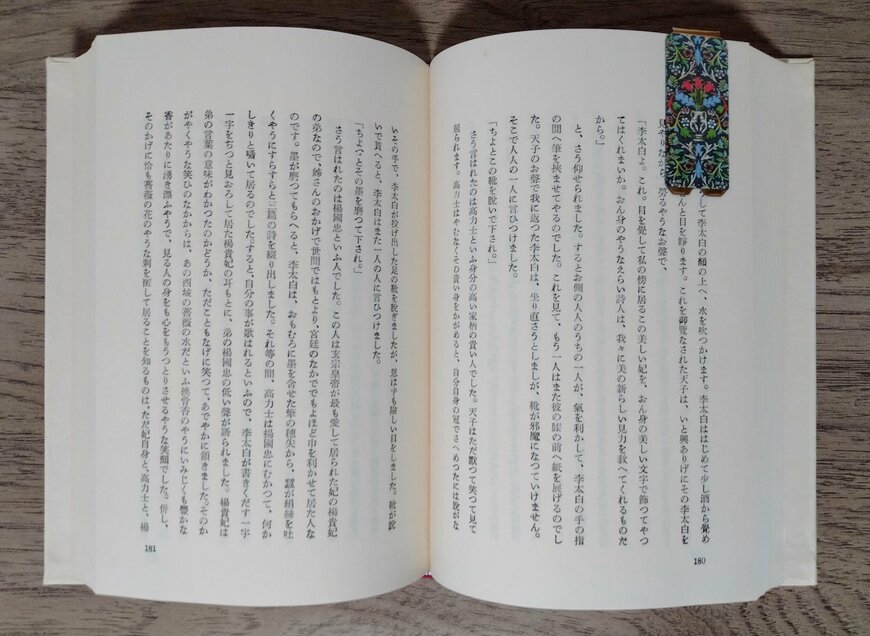 して李太白の顏の上へ、水を吹つかけます。李太白ははじめて少し酒から覺め
んと目を睜ります。これを御覽なされた天子は、いと興ありげにその李太白を
見やりながら、勞るやうなお聲で、
「李太白よ。これ。目を覺して私の傍に居るこの美しい妃を、おん身の美しい文字で飾つてやつ
てはくれまいか。おん身のやうなえらい詩人は、我々に美の新らしい見力を敎へてくれるものだ
から。」
と、さう仰せられました。するとお側の人人のうちの一人が、氣を利かして、李太白の手の指
の間へ筆を挾ませてやるのでした。これを見て、もう一人はまた彼の膝の前へ紙を展げるのでし
た。天子のお聲で我に返つた李太白は、坐り直さうとしましが、靴が邪魔になつていけません。
そこで人人の一人に言ひつけました。
「ちよとこの靴を脫いで下され。」
さう言はれたのは高力士といふ身分の高い家柄の貴い人でした。天子はただ默つて笑つて見て
居られます。高力士はやむなくその貴い身をかがめると、自分自身の冠でさへめつたには脫がな
180
いその手で、李太白が投げ出した足の靴を脫ぎましたが、思はずも險しい目をしました。靴が脫
いで貰へると、李太白はまた一人の人に言ひつけました。
「ちよいとその墨を磨つて下され。」
さう言はれたのは楊國忠といふ人でした。この人は玄宗皇帝が最も愛して居られた妃の楊貴妃
の弟なので、姊さんのおかげで世間ではもとより、宮廷のなかででもよほど巾を利かせて居た人な
のです。墨が磨つてもらへると、李太白は、おもむろに墨を含せた筆の穗尖から、蠶が絹絲を吐
くやうにすらすらと三篇の詩を綴り出しました。それ等の間、高力士は楊國忠にむかつて、何か
しきりと囁いて居るのでした。すると、自分の事が歌はれるといふので、李太白が書きくだす一字
一字をぢつと見おろして居た楊貴妃の耳もとに、弟の楊國忠の低い聲が語られました。楊貴妃は
弟の言葉の意味がわかつたのかどうか、ただこともなげに笑つて、あでやかに頷きました。そのか
がやくやうな笑ひのなかからは、あの西域の薔薇の水だといふ換骨香のやうにいみじくも豐かな
香があたりに湧き漂ふやうで、見る人の身をも心をもうつとりさせるやうな笑顏でした。併し、
そのかげに恰も薔薇の花のやうな刺を匿して居ることを知るものは、ただ妃自身と、高力士と、楊
181